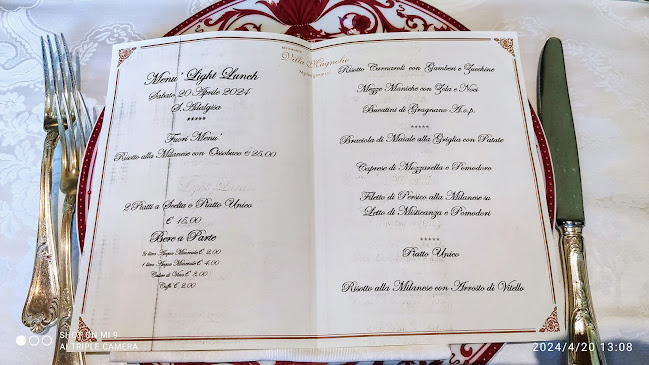 Menu' Light Lunch
Sabato 20 Aprile 2024
S. Adalgisa
*****
Fuori Menu'
Risotto alla Milanese con Ossobuco € 25,00
2 Piatti a Scelta o Piatto Unico
€ 15,00
Bere a Parte
½ litro Acqua Minerale € 2,00
1 litro Acqua Minerale € 4,00
Calice di Vino € 3,00
Caffè € 2,00
Villa
Risotto Carnaroli con Gamberi e Zucchine
Mezze Maniche con Zola e Noci
Bucatini di Gragnano A.o.p.
*****
Braciola di Maiale alla Griglia con Patate
Caprese di Mozzarella e Pomodoro
Filetto di Persico alla Milanese su
Letto di Misticanza e Pomodori
*****
Piatto Unico
Risotto alla Milanese con Arrosto di Vitello
SHOT ON MI 9
AI TRIPLE CAMERA
2024/4/20 13:08